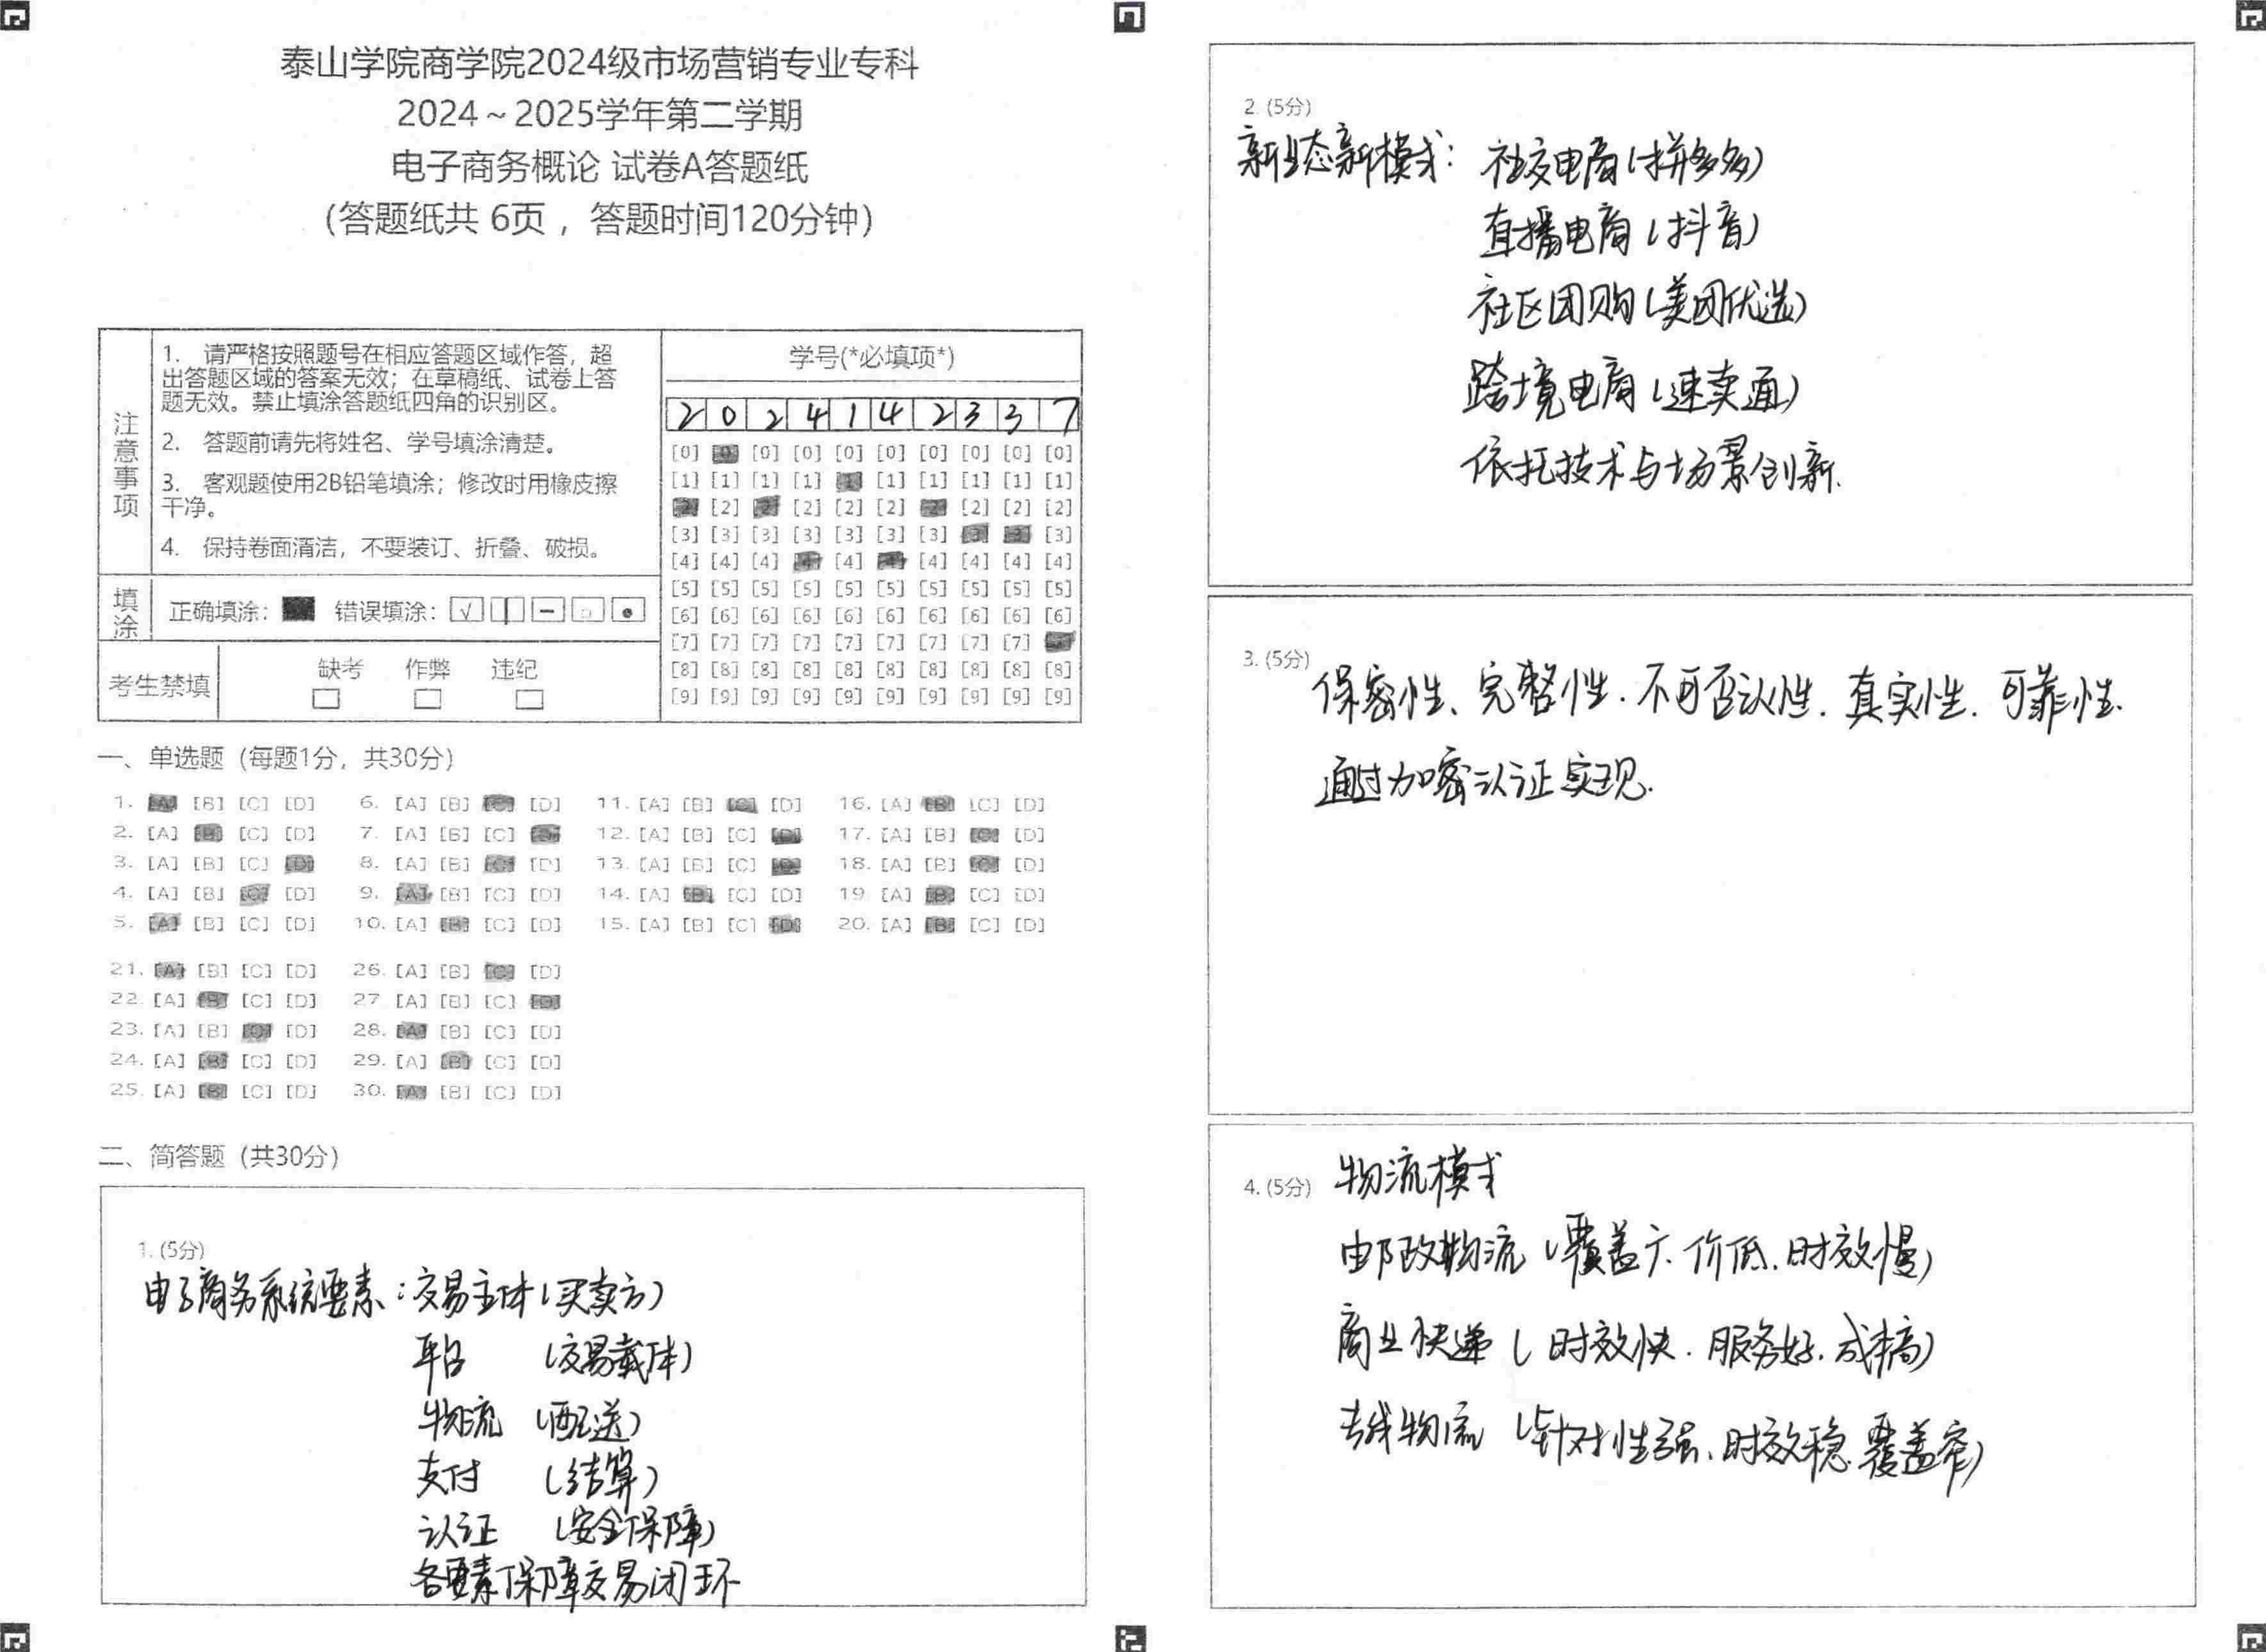 泰山学院商学院2024级市场营销专业专科
2024～2025学年第二学期
电子商务概论 试卷A答题纸
（答题纸共 6页，答题时间120分钟）
注意事项
1. 请严格按照题号在相应答题区域作答，超
出答题区域的答案无效；在草稿纸、试卷上答
题无效。禁止填涂答题纸四角的识别区。
2. 答题前请先将姓名、学号填涂清楚。
3. 客观题使用2B铅笔填涂；修改时用橡皮擦
干净。
4. 保持卷面清洁，不要装订、折叠、破损。
填涂
正确填涂： 错误填涂：
考生禁填
缺考 作弊 违纪
学号(*必填项*)
2 0 2 4 1 4 2 3 3 7
[0] [0] [0] [0] [0] [0] [0] [0] [0] [0]
[1] [1] [1] [1] [1] [1] [1] [1] [1] [1]
[2] [2] [2] [2] [2] [2] [2] [2] [2] [2]
[3] [3] [3] [3] [3] [3] [3] [3] [3] [3]
[4] [4] [4] [4] [4] [4] [4] [4] [4] [4]
[5] [5] [5] [5] [5] [5] [5] [5] [5] [5]
[6] [6] [6] [6] [6] [6] [6] [6] [6] [6]
[7] [7] [7] [7] [7] [7] [7] [7] [7] [7]
[8] [8] [8] [8] [8] [8] [8] [8] [8] [8]
[9] [9] [9] [9] [9] [9] [9] [9] [9] [9]
一、单选题（每题1分，共30分）
1. [A] [B] [C] [D] 6. [A] [B] [C] [D] 11. [A] [B] [C] [D] 16. [A] [B] [C] [D]
2. [A] [B] [C] [D] 7. [A] [B] [C] [D] 12. [A] [B] [C] [D] 17. [A] [B] [C] [D]
3. [A] [B] [C] [D] 8. [A] [B] [C] [D] 13. [A] [B] [C] [D] 18. [A] [B] [C] [D]
4. [A] [B] [C] [D] 9. [A] [B] [C] [D] 14. [A] [B] [C] [D] 19. [A] [B] [C] [D]
5. [A] [B] [C] [D] 10. [A] [B] [C] [D] 15. [A] [B] [C] [D] 20. [A] [B] [C] [D]
21. [A] [B] [C] [D] 26. [A] [B] [C] [D]
22. [A] [B] [C] [D] 27. [A] [B] [C] [D]
23. [A] [B] [C] [D] 28. [A] [B] [C] [D]
24. [A] [B] [C] [D] 29. [A] [B] [C] [D]
25. [A] [B] [C] [D] 30. [A] [B] [C] [D]
二、简答题（共30分）
1. (5分)
电子商务系统要素：交易主体（买卖方）
平台 （交易载体）
物流 （配送）
支付 （结算）
认证 （安全保障）
各要素保障交易闭环
2. (5分)
新业态新模式： 社交电商（拼多多）
直播电商（抖音）
社区团购（美团优选）
跨境电商（速卖通）
依托技术与场景创新.
3. (5分) 保密性、完整性.不可否认性.真实性.可靠性.
通过加密认证实现.
4. (5分) 物流模式
邮政物流（覆盖广.价低.时效慢）
商业快递（时效快.服务好.成本高）
专线物流（针对性强、时效稳.覆盖窄）